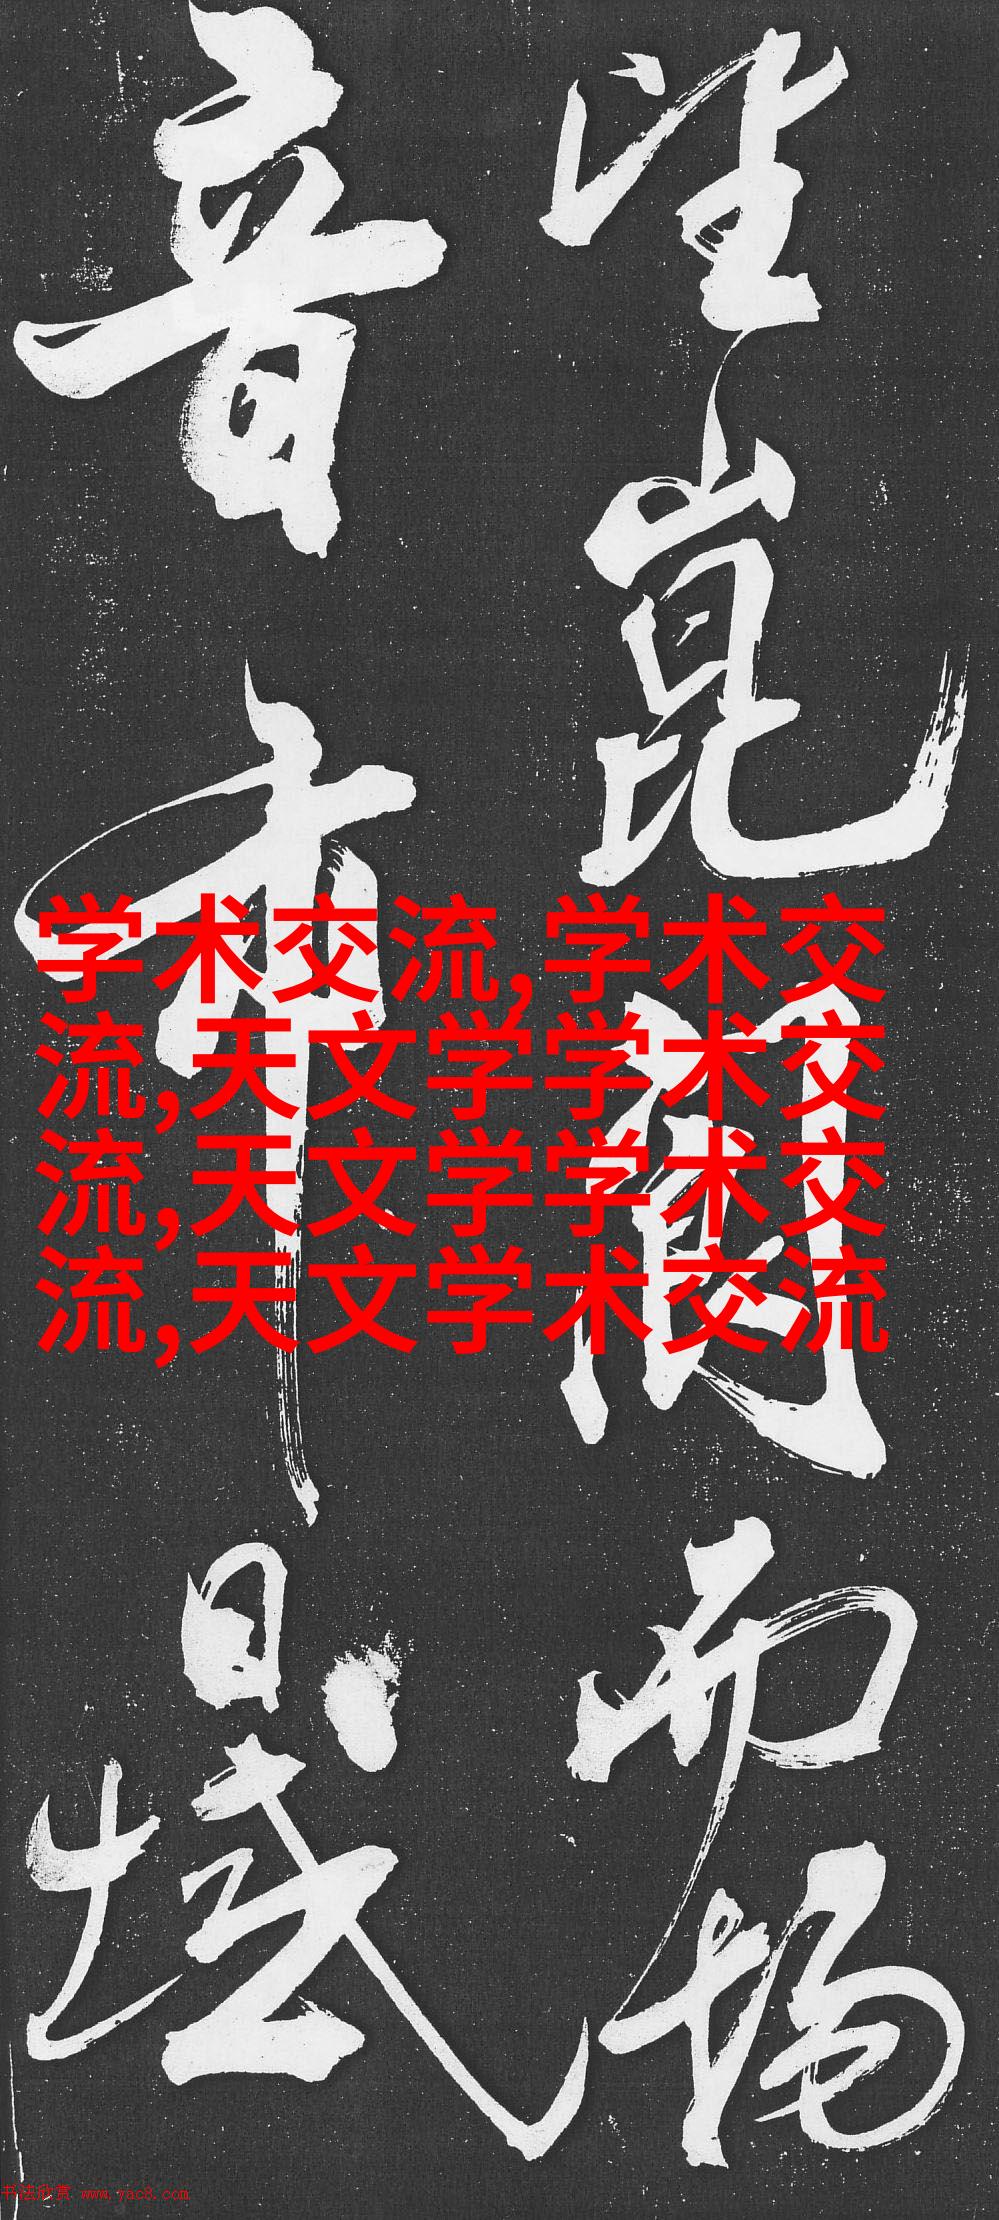 望崑閬而揚
音帀日域
学术交流,学术交
流,天文学学术交
流,天文学学术交
流,天文学术交流
书法欣赏 www.yac8.com